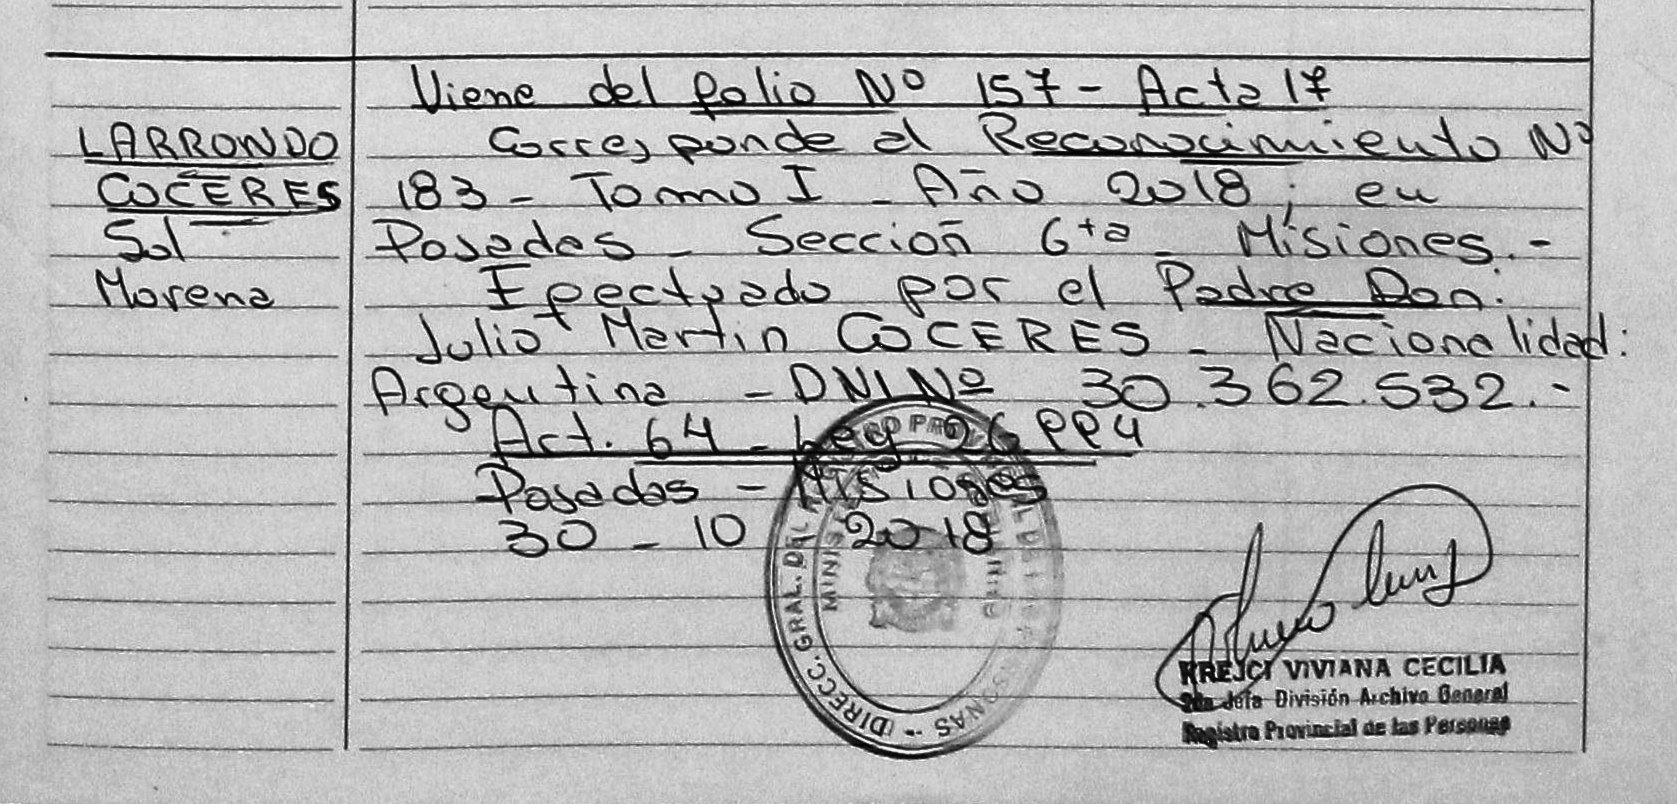 Viene del folio Nº 157 - Acta 17
LARRONDO
COCERES
Sol
Morena
Corresponde al Reconocimiento Nº
183 - Tomo I - Año 2018; en
Posadas - Sección 6ta - Misiones.-
Efectuado por el Padre Don:
Julio Martin COCERES - Nacionalidad:
Argentina - DNI Nº 30.362.532.-
Act. 64 - Leg. 26 PP4
Posadas - Misiones
30 - 10 2018
DIRECC. GRAL. DEL REGISTRO PROVINCIAL DE LAS PERSONAS
MINIS
KREJCI VIVIANA CECILIA
2da Jefa División Archivo General
Registro Provincial de las Personas